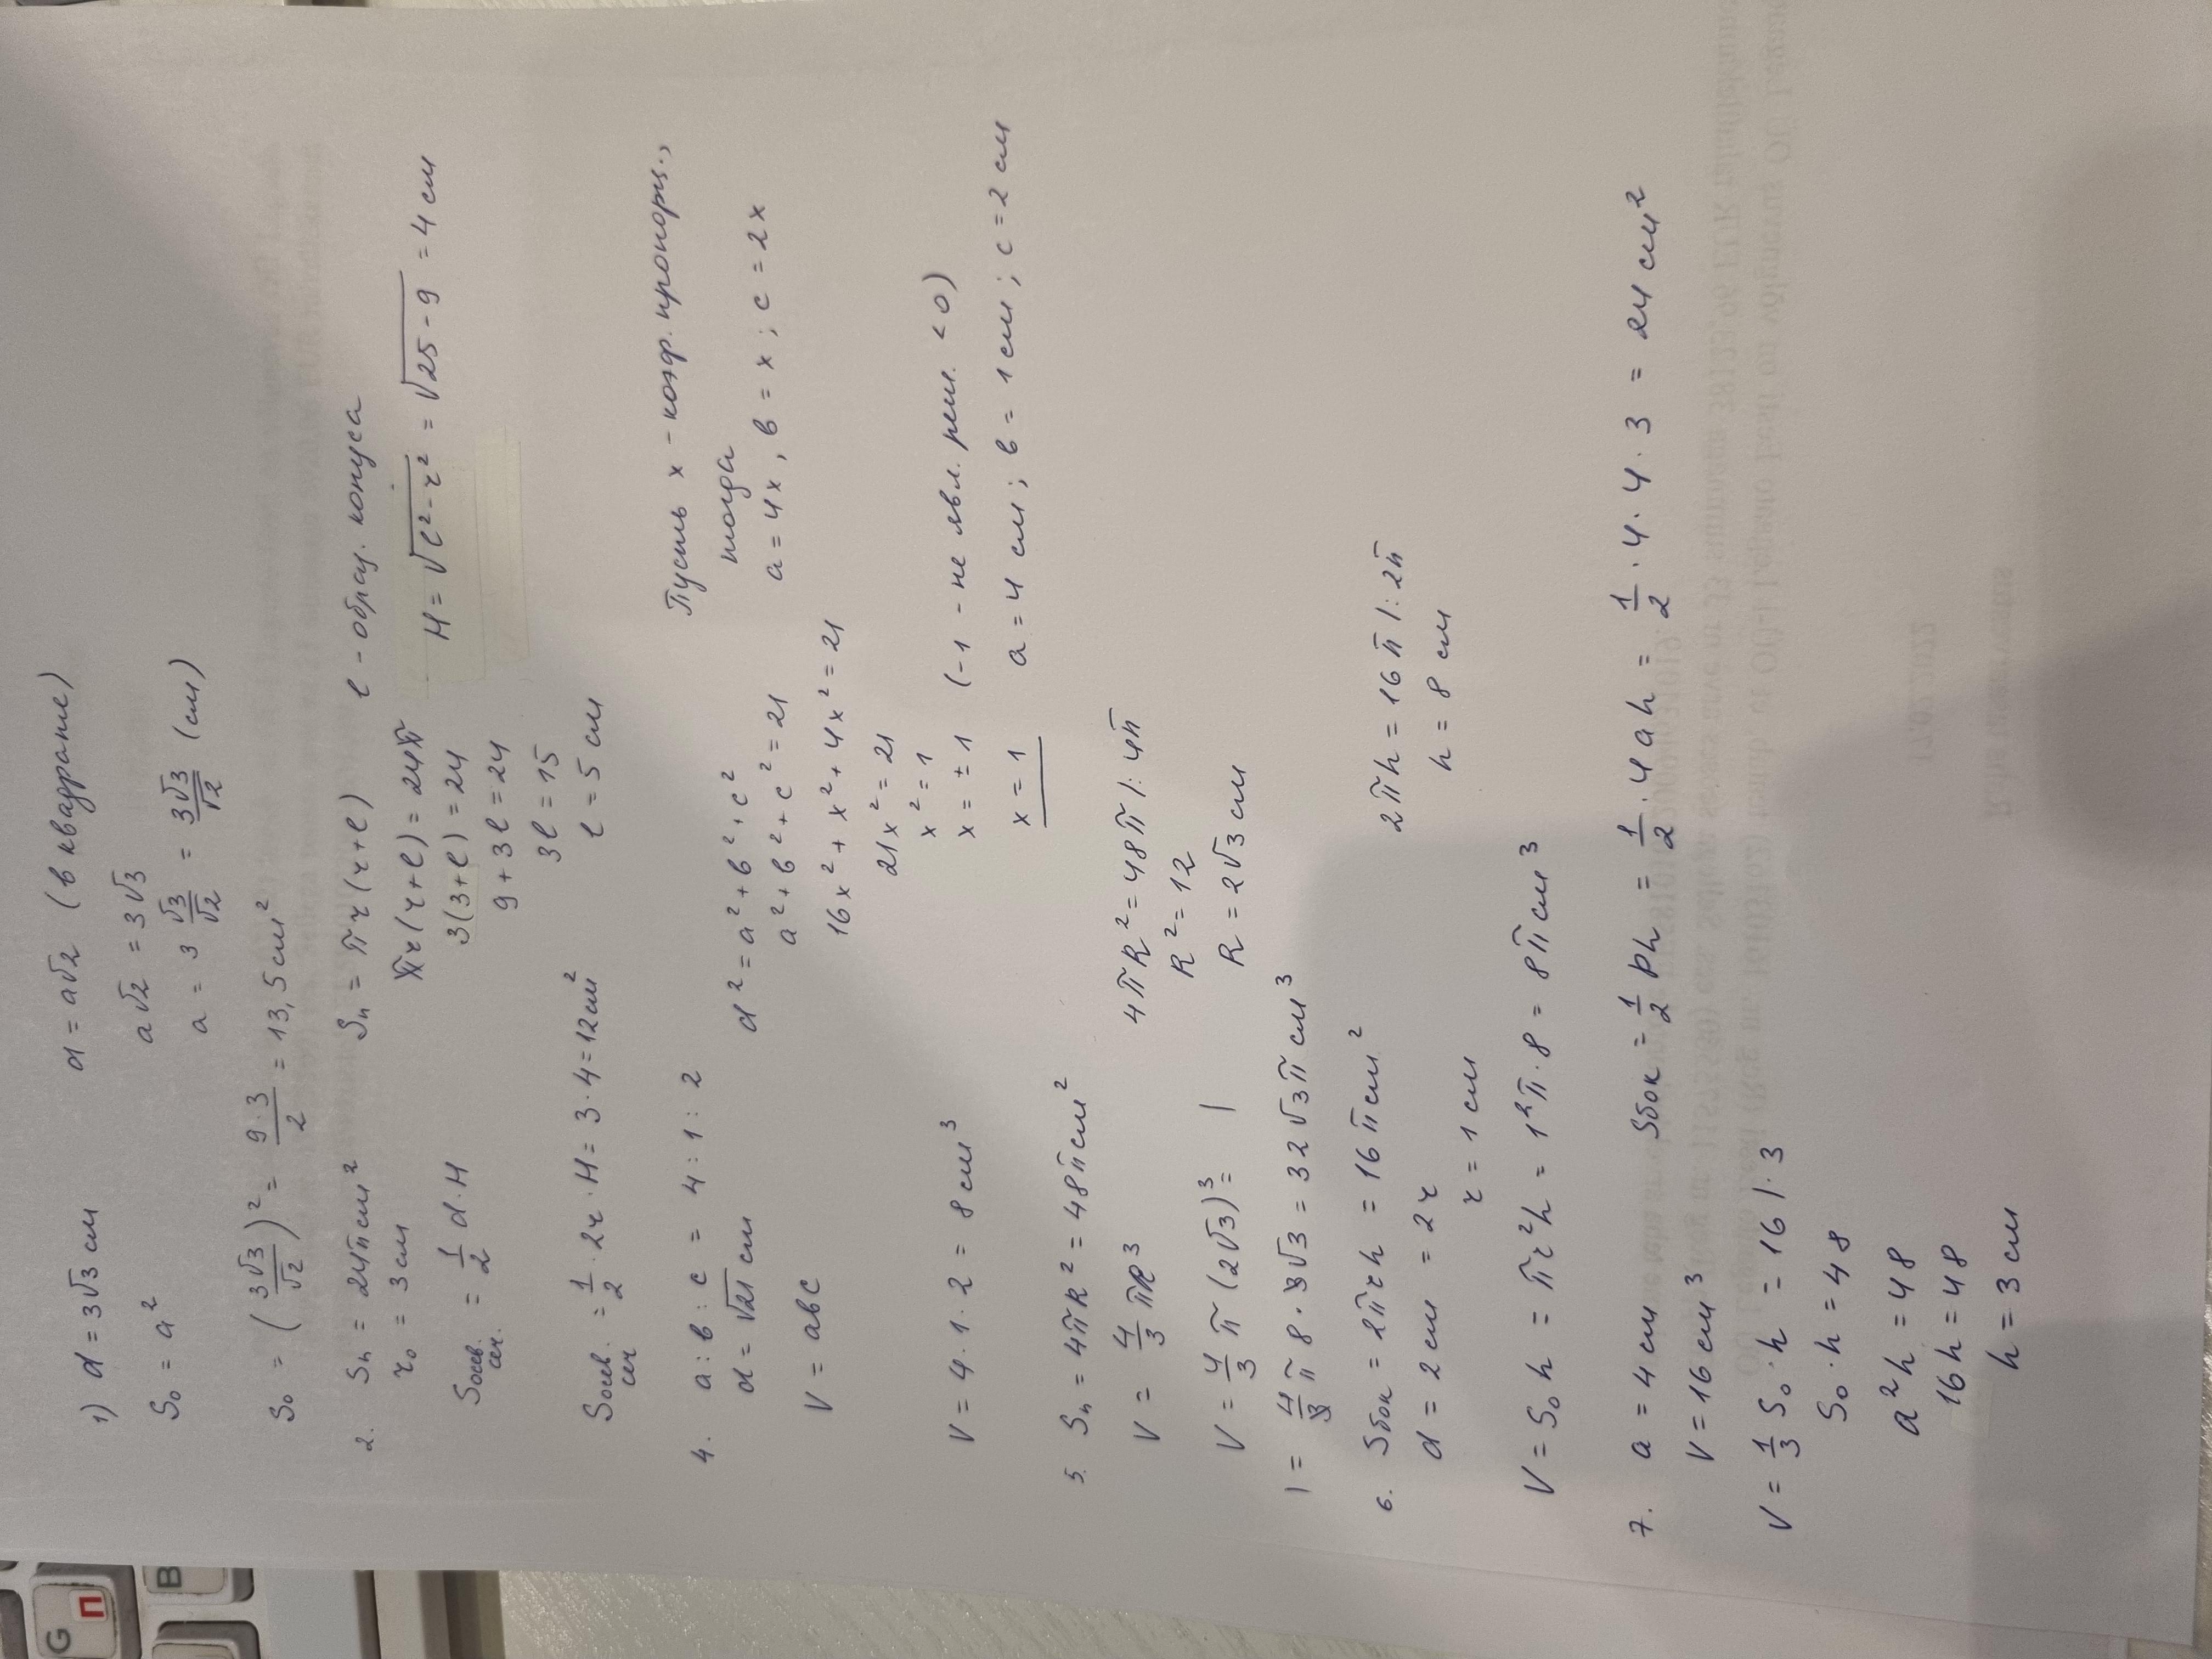 1) d = 3√3 см d = a√2 (в квадрате)
S₀ = a² a√2 = 3√3
a = 3 √3/√2 = 3√3/√2 (см)
S₀ = (3√3/√2)² = 9·3/2 = 13,5 см²
2. Sп = 24π см² Sп = πr(r+l) l - образ. конуса
r₀ = 3 см πr(r+l) = 24π H = √l²-r² = √25-9 = 4 см
Sосев. сеч. = 1/2 d·H 3(3+l) = 24
9+3l = 24
3l = 15
l = 5 см
Sосев. сеч = 1/2 · 2r · H = 3·4 = 12 см²
Пусть x - коэф. пропорц.,
4. a : b : c = 4 : 1 : 2 тогда
d = √21 см d² = a² + b² + c² a = 4x, b = x; c = 2x
V = abc a² + b² + c² = 21
16x² + x² + 4x² = 21
21x² = 21
x² = 1
x = ±1 (-1 - не явл. реш. < 0)
V = 4·1·2 = 8 см³ x = 1 a = 4 см; b = 1 см; c = 2 см
5. Sп = 4πR² = 48π см² 4πR² = 48π |: 4π
V = 4/3 πR³ R² = 12
V = 4/3 π (2√3)³ = | R = 2√3 см
| = 4/3 π 8·3√3 = 32√3π см³
6. Sбок = 2πrh = 16π см² 2πh = 16π |: 2π
d = 2 см = 2r h = 8 см
r = 1 см
V = S₀h = πr²h = 1²π·8 = 8π см³
7. a = 4 см Sбок = 1/2 Ph = 1/2 · 4ah = 1/2 · 4 · 4 · 3 = 24 см²
V = 16 см³
V = 1/3 S₀·h = 16 |·3
S₀·h = 48
a²h = 48
16h = 48
h = 3 см
G
П
B